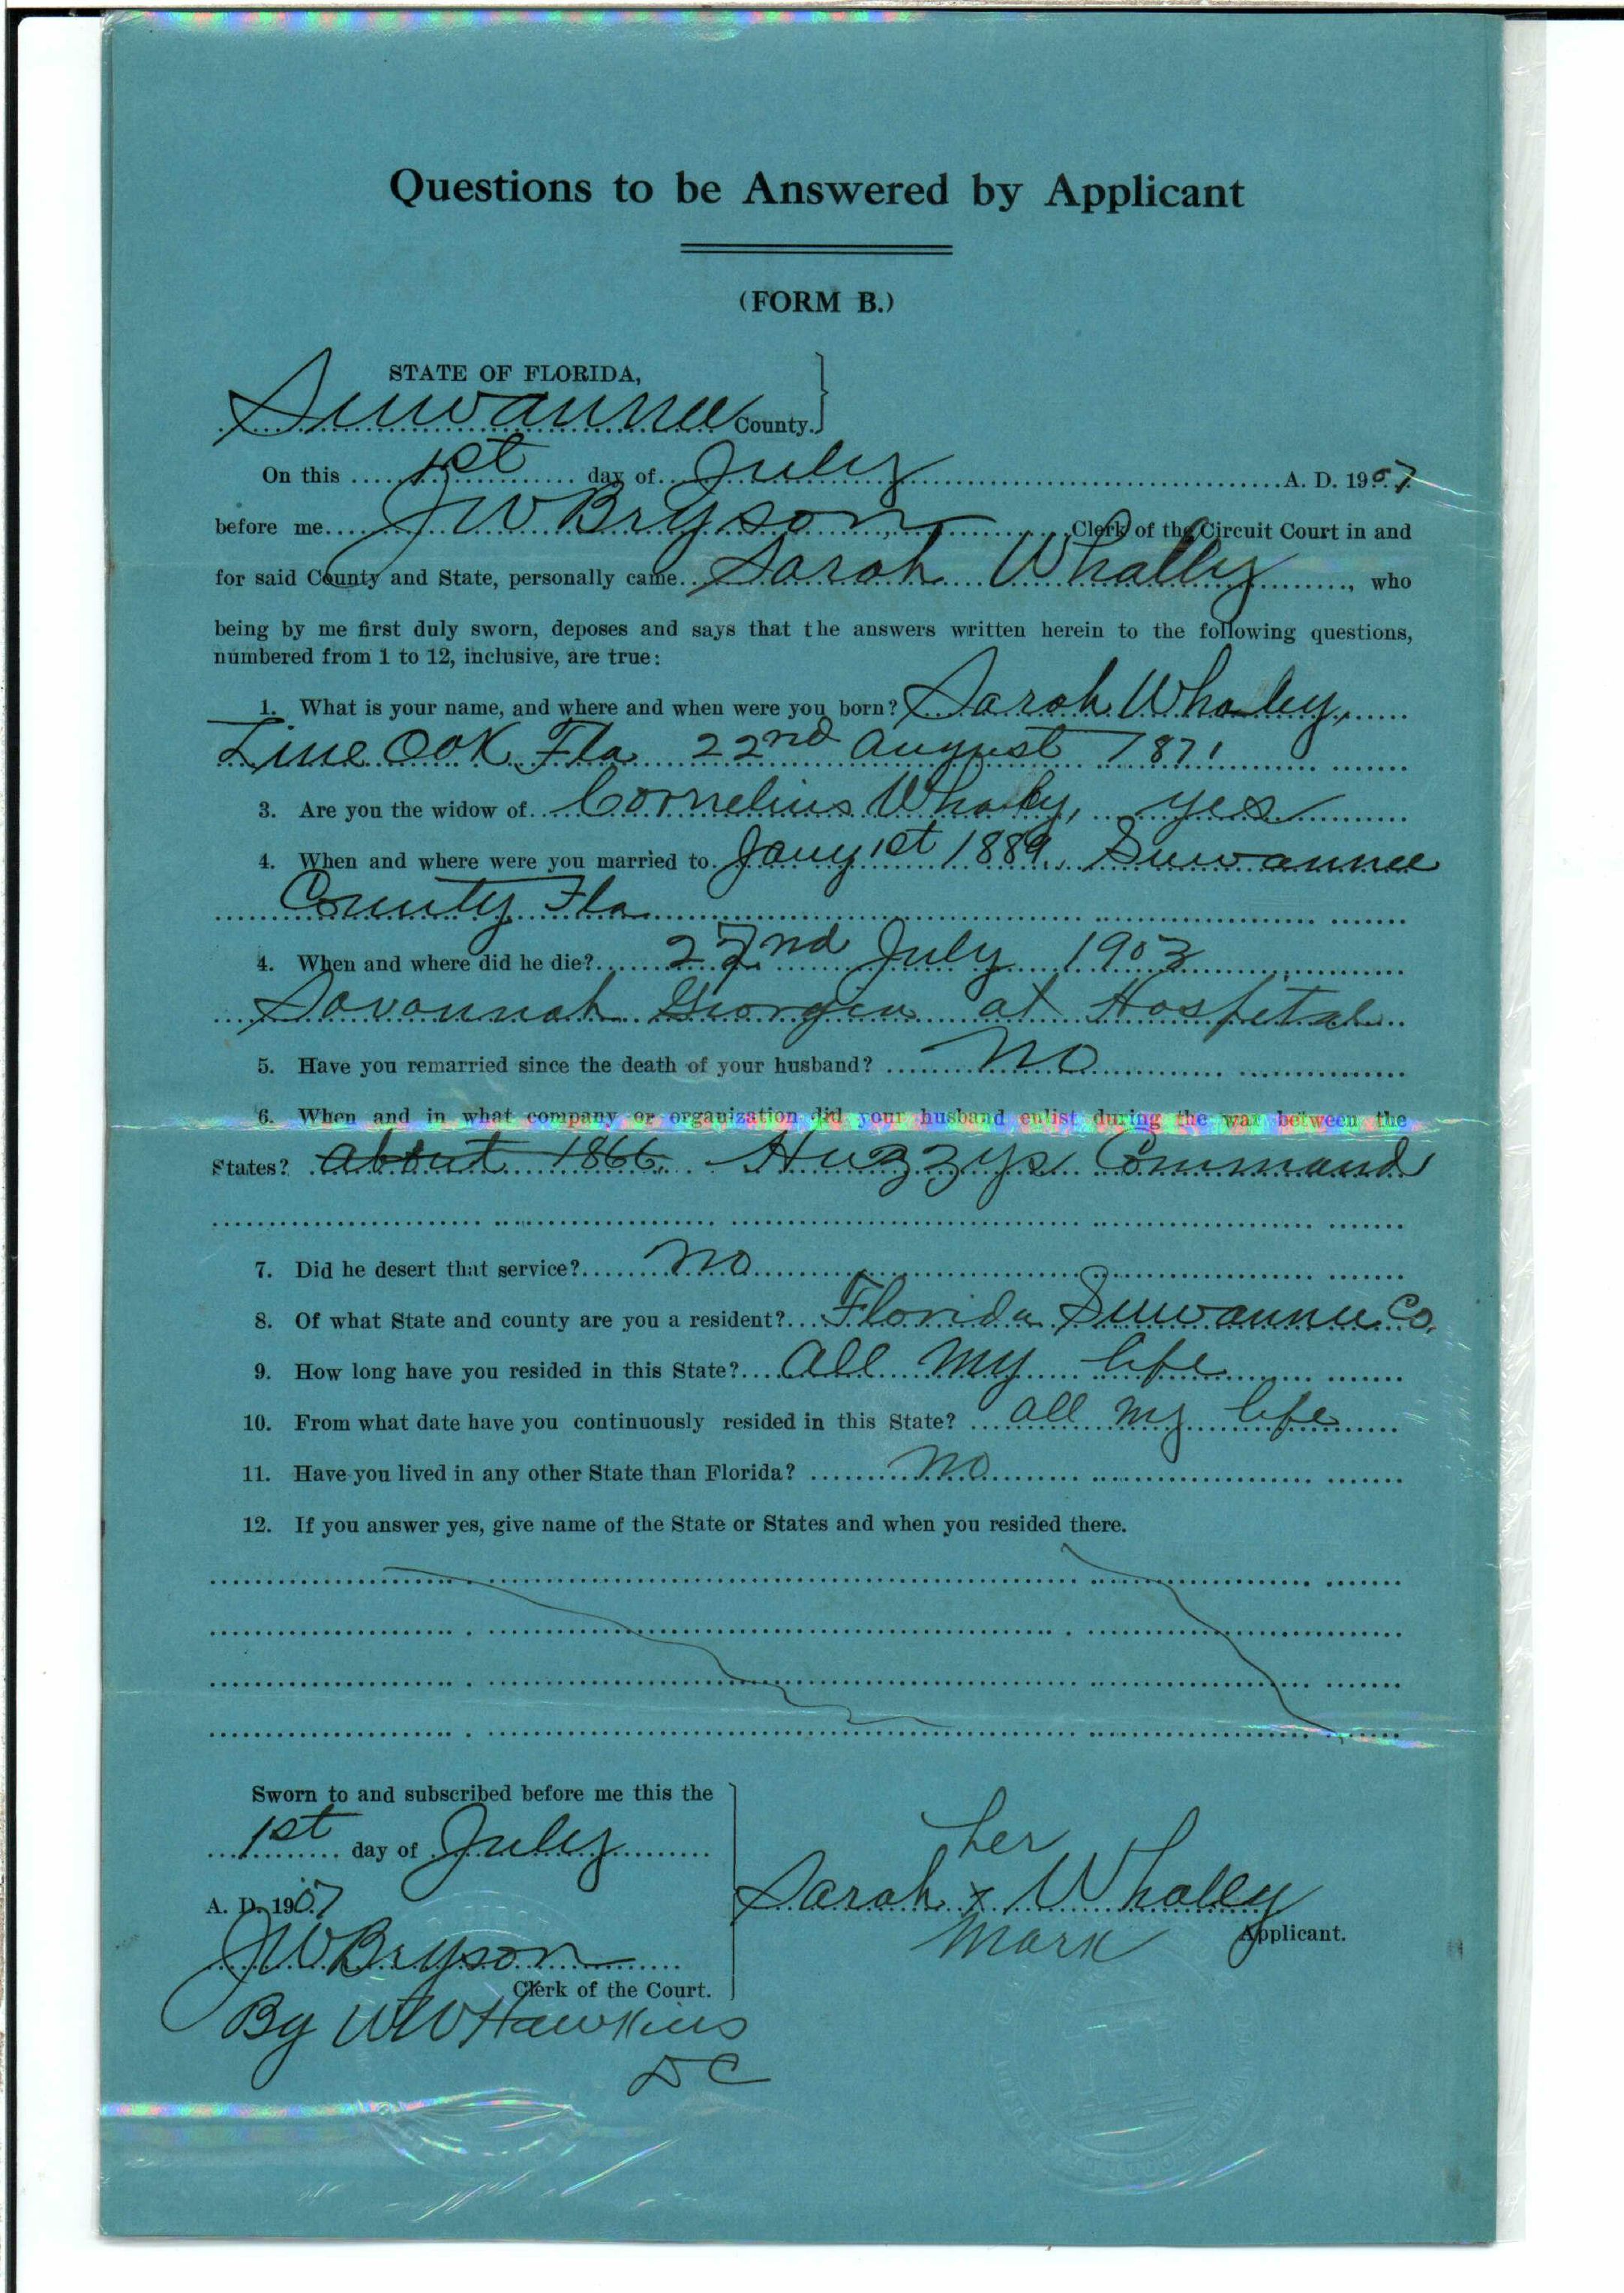 Questions to be Answered by Applicant
(FORM B.)
STATE OF FLORIDA,
Suwannee County.
On this 1st day of July A. D. 1907
before me J W Bryson, Clerk of the Circuit Court in and
for said County and State, personally came Sarah Whalley, who
being by me first duly sworn, deposes and says that the answers written herein to the following questions,
numbered from 1 to 12, inclusive, are true:
1. What is your name, and where and when were you born? Sarah Whaley,
Live Oak Fla 22nd August 1871
3. Are you the widow of Cornelius Whaley, yes
4. When and where were you married to Jany 1st 1889, Suwannee
County Fla
4. When and where did he die? 22nd July 1903
Savannah Georgia at Hospital
5. Have you remarried since the death of your husband? No
6. When and in what company or organization did your husband enlist during the war between the
States? about 1866 Huzzys Command
7. Did he desert that service? No
8. Of what State and county are you a resident? Florida Suwannee Co.
9. How long have you resided in this State? All my life
10. From what date have you continuously resided in this State? All my life
11. Have you lived in any other State than Florida? No
12. If you answer yes, give name of the State or States and when you resided there.
Sworn to and subscribed before me this the
1st day of July
A. D. 1907
J W Bryson
Clerk of the Court.
By W W Hawkins
D C
her
Sarah x Whalley
mark
Applicant.